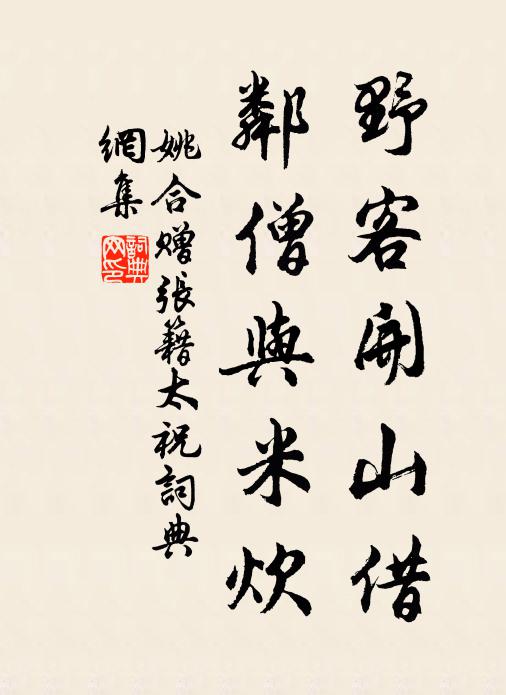 野客開山借
鄰僧與米炊
姚合赠張籍太祝詞典
網集
詞典
网印